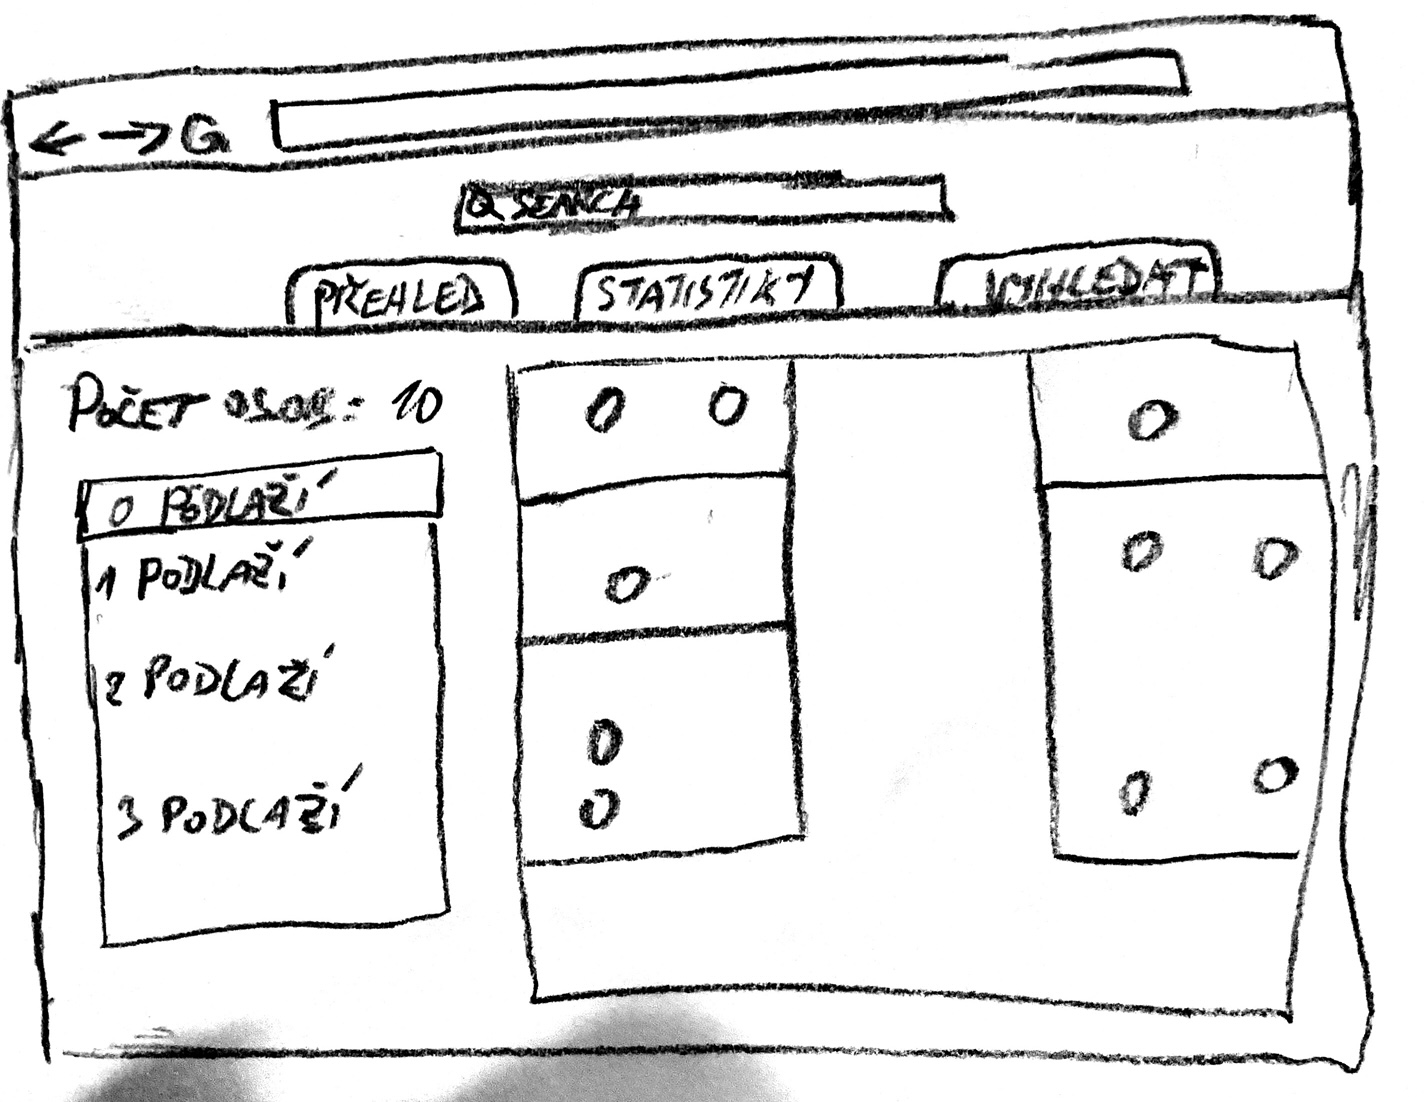 SEARCH
PŘEHLED STATISTIKY VYHLEDAT
POČET OSOB: 10
0 PODLAŽÍ
1 PODLAŽÍ
2 PODLAŽÍ
3 PODLAŽÍ